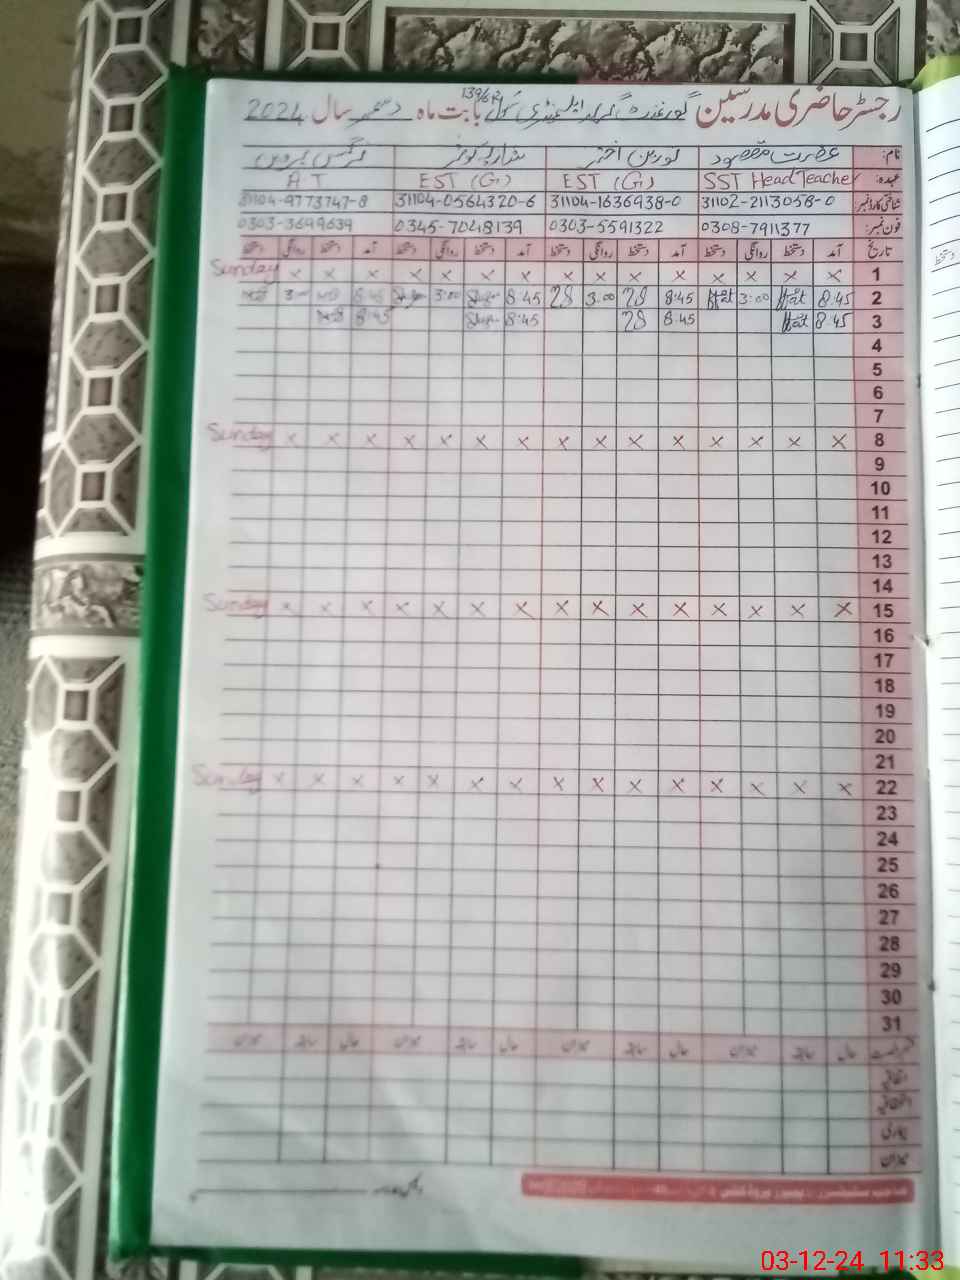 رجسٹر حاضری مدرسین گورنمنٹ گرلز ایلیمنٹری سکول 139/6R بابت ماہ دسمبر سال 2024
نام: عصرت مقصود نورین اختر شازیہ کوثر نرگس پروین
عہدہ: SST Head Teacher EST (G) EST (G) A T
شناختی کارڈ نمبر: 31102-2113058-0 31104-1636938-0 31104-0564320-6 31104-9773747-8
فون نمبر: 0308-7911377 0303-5591322 0345-7048139 0303-3699639
تاریخ آمد دستخط روانگی دستخط آمد دستخط روانگی دستخط آمد دستخط روانگی دستخط آمد دستخط روانگی دستخط
1 x x x x x x x x x x x x x x x Sunday
2 8:45 3:00 8:45 3:00 8:45 3:00 8:45 3:00
3 8:45 8:45 8:45 8:45
4
5
6
7
8 x x x x x x x x x x x x x x x Sunday
9
10
11
12
13
14
15 x x x x x x x x x x x x x x x Sunday
16
17
18
19
20
21
22 x x x x x x x x x x x x x x x Sunday
23
24
25
26
27
28
29
30
31
حال سابقہ میزان حال سابقہ میزان حال سابقہ میزان حال سابقہ میزان
اتفاقیہ
استحقاقیہ
بیماری
میزان
03-12-24 11:33